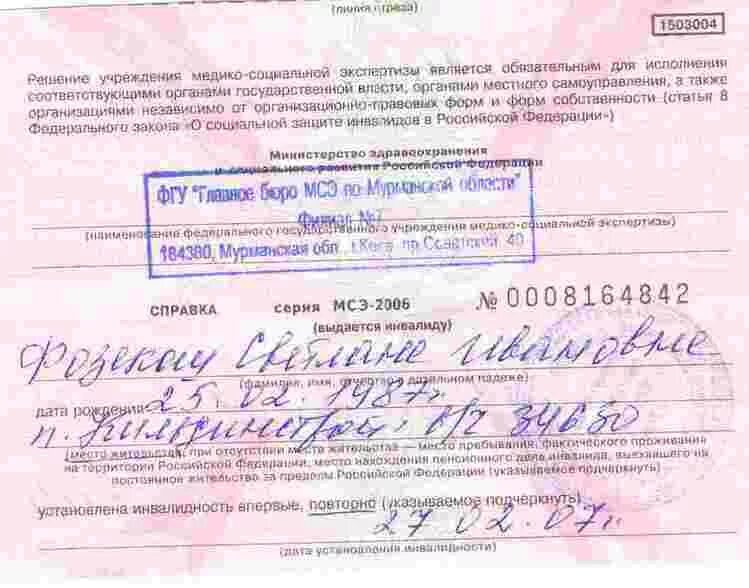 (линия отреза)
1503004
Решение учреждения медико-социальной экспертизы является обязательным для исполнения
соответствующими органами государственной власти, органами местного самоуправления, а также
организациями независимо от организационно-правовых форм и форм собственности (статья 8
Федерального закона «О социальной защите инвалидов в Российской Федерации»)
Министерство здравоохранения
и социального развития Российской Федерации
ФГУ "Главное бюро МСЭ по Мурманской области"
Филиал №7
(наименование федерального государственного учреждения медико-социальной экспертизы)
184380, Мурманская обл., г.Кола, пр.Советский, 40
СПРАВКА серия МСЭ-2006 № 0008164842
(выдается инвалиду)
Светлане Ивановне
(фамилия, имя, отчество в дательном падеже)
дата рождения 25. 02. 1987г.
п. Кильдинстрой в/ч 34680
(место жительства, при отсутствии места жительства — место пребывания, фактического проживания
на территории Российской Федерации, место нахождения пенсионного дела инвалида, выехавшего на
постоянное жительство за пределы Российской Федерации (указываемое подчеркнуть)
установлена инвалидность впервые, повторно (указываемое подчеркнуть)
27 02. 07г.
(дата установления инвалидности)